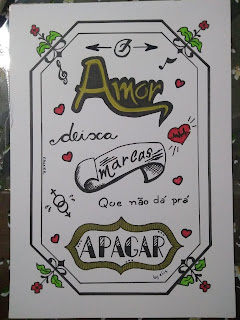 Amor
deixa
marcas
Que não dá prá
APAGAR